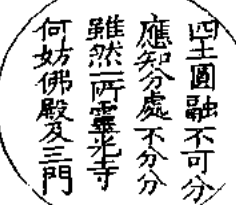 四土圓融不可分
應知分處不分分
雖然一所靈光寺
何妨佛殿及三門